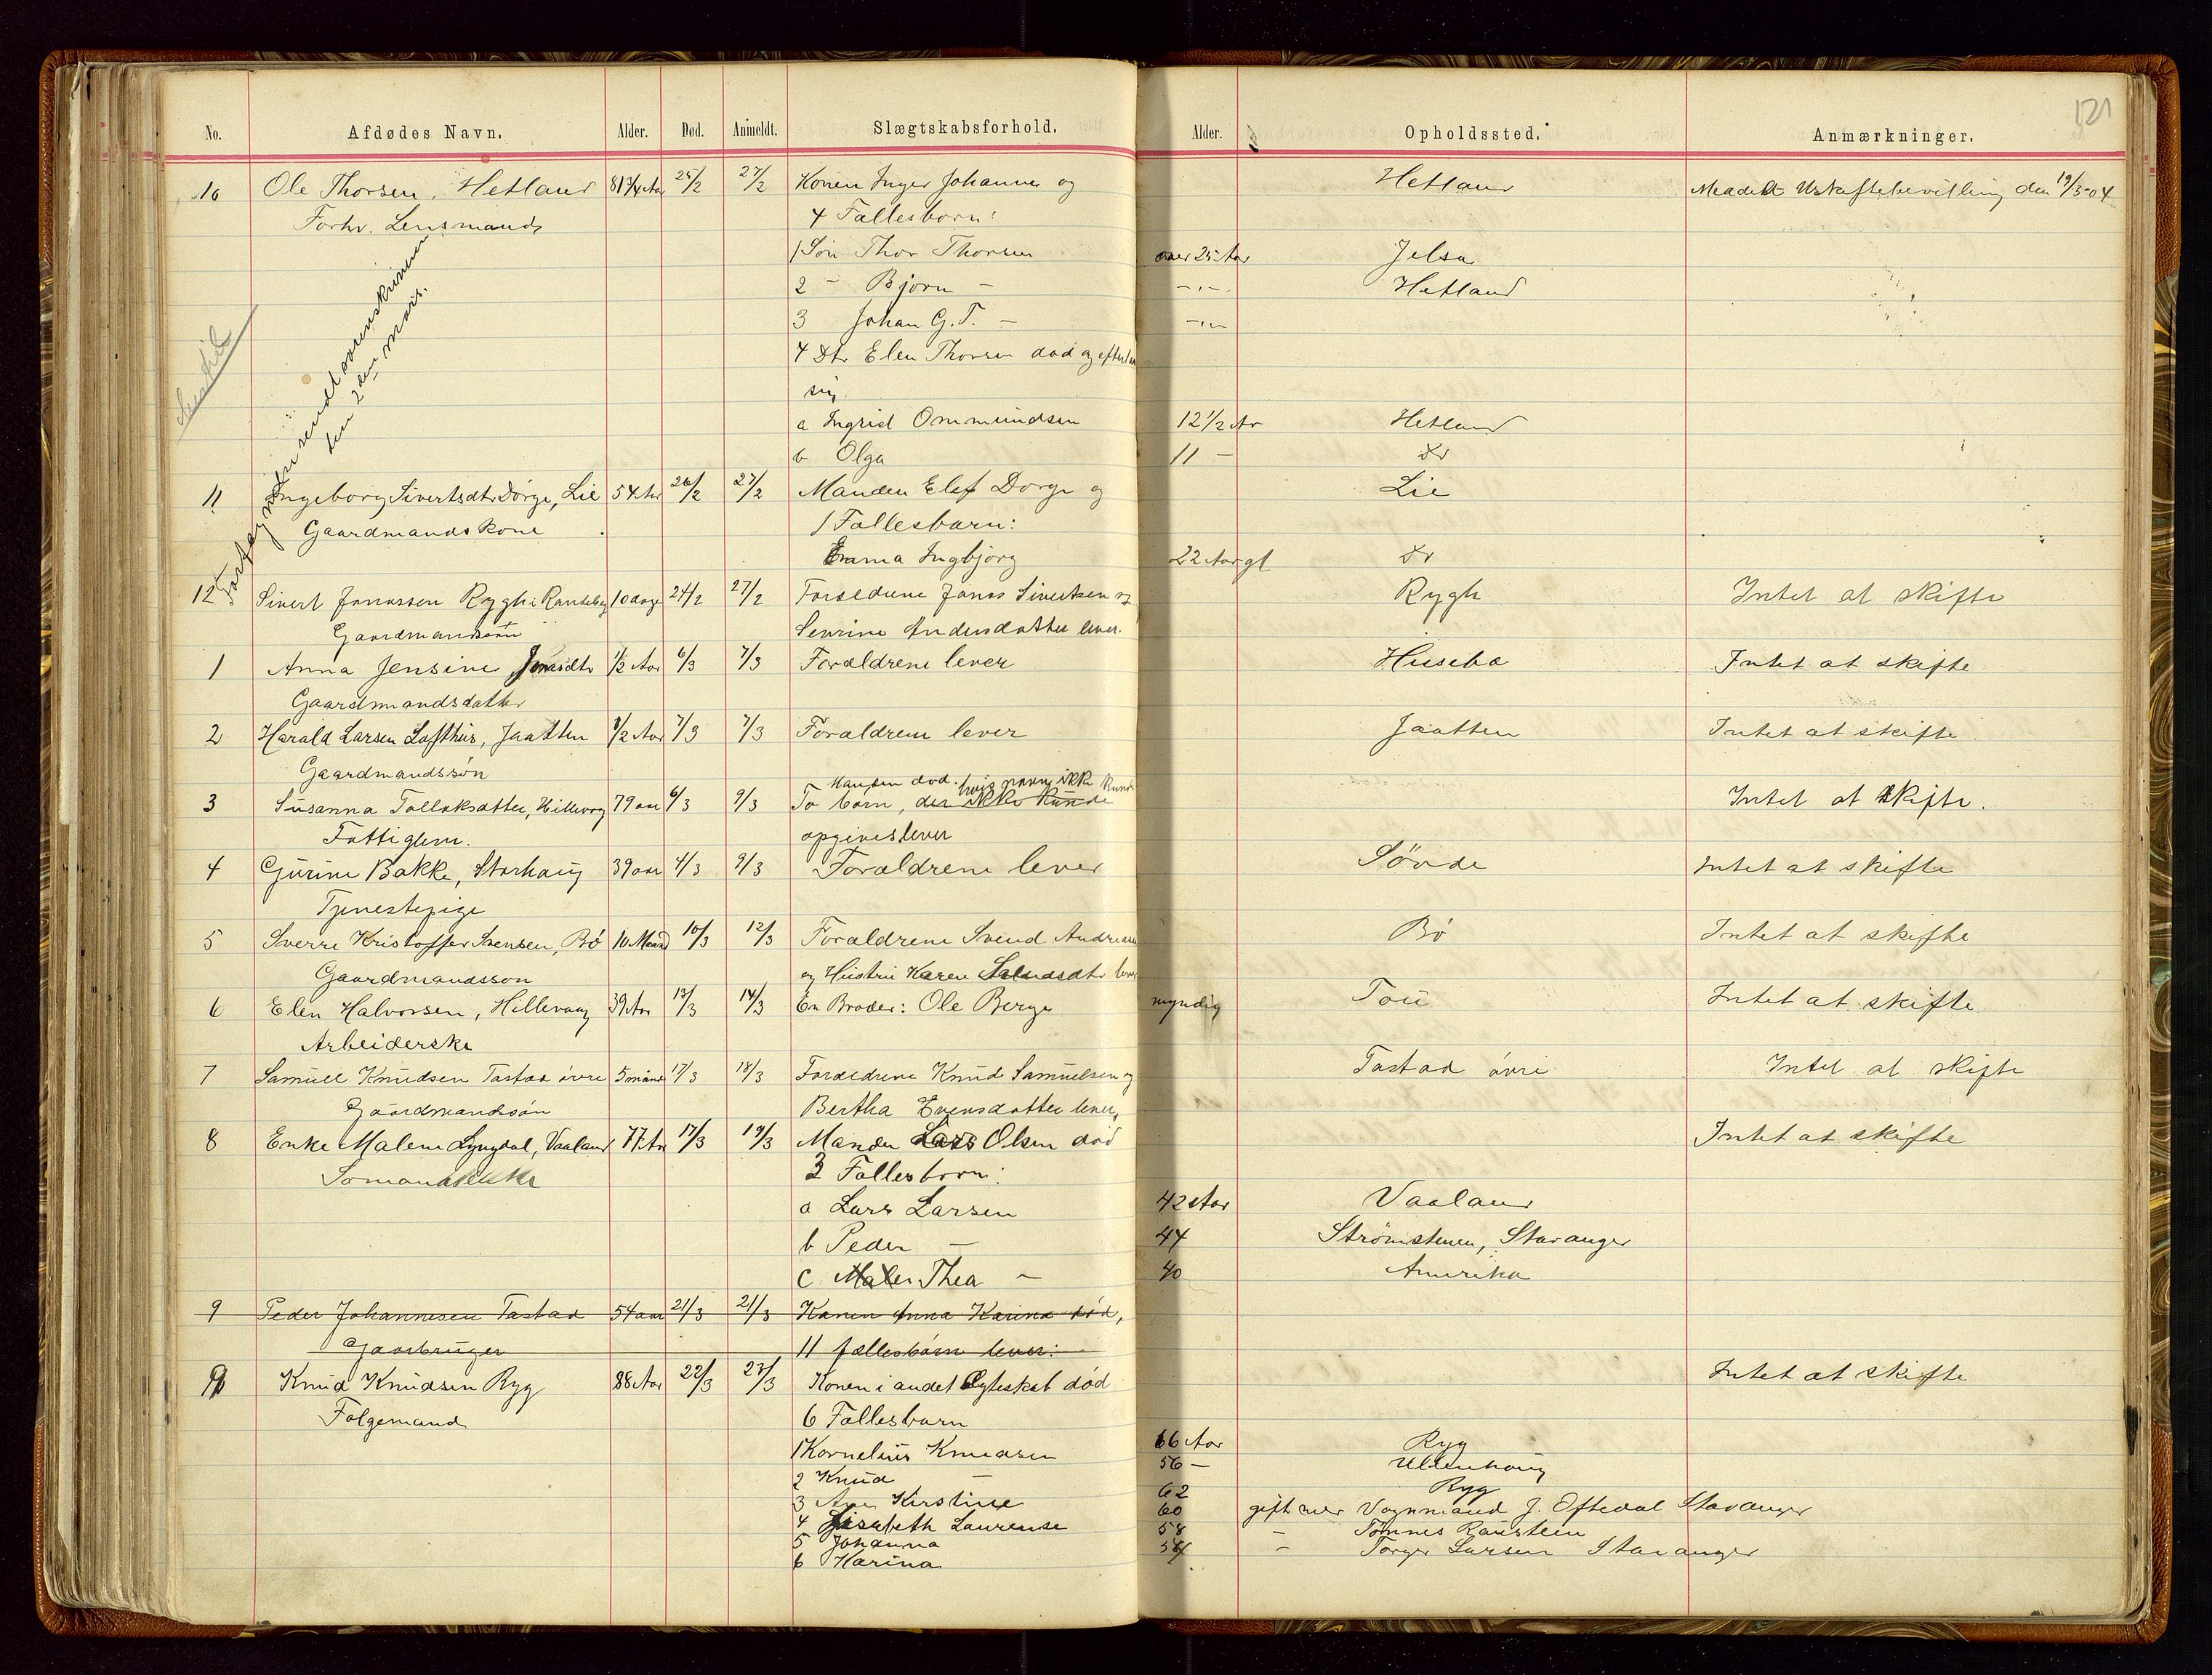 121
No. Afdødes Navn. Alder. Død. Anmeldt. Slægtskabsforhold. Alder. Opholdssted. Anmærkninger.
10 Ole Thorsen, Hetland 81 3/4 Aar 25/2 27/2 Konen Inger Johanne og Hetland Meddelt Uskiftebevilling den 19/3-04
Forhv. Lensmand 4 Fællesbørn:
1 Søn Thor Thorsen over 25 Aar Jelsa
2 - Bjørn - -"- Hetland
3 Johan G. T. - -"-
4 Dtr Elen Thorsen død og efterl
sig
a Ingrid Ommundsen 12 1/2 Ar Hetland
b Olga 11 - Do
sendt sorenskriveren
den 2den marts.
11 Ingeborg Sivertsdtr Dørge, Lie 54 Aar 26/2 27/2 Manden Elef Dorge og Lie
Gaardmandskone 1 Fællesbarn:
Emma Ingbjørg 22 Aar gl Do
12 Sivert Jonassen Rygh i Randeberg 10 dage 24/2 27/2 Forældrene Jonas Sivertsen og Rygh Intet at skifte
Gaardmandssøn Sevrine Andersdatter lever.
1 Anna Jensine Jonasdtr 1/2 Aar 6/3 7/3 Forældrene lever Husebø Intet at skifte
Gaardmandsdatter
2 Harald Larsen Lofthus, Jaatten 1/2 Aar 7/3 7/3 Forældrene lever Jaatten Intet at skifte
Gaardmandssøn
Manden død. hvis navn ikke kunde
3 Susanna Tollaksdatter, Hillevaag 79 aar 6/3 9/3 To børn, der ikke kunde Intet at skifte.
Fattiglem. opgives lever
4 Gurine Bakke, Storhaug 39 aar 4/3 9/3 Forældrene lever Søvde Intet at skifte
Tjenestepige
5 Sverre Kristoffer Svensen, Bø 10 Maand 10/3 12/3 Forældrene Svend Andreasen Bø Intet at skifte
Gaardmandssøn og Hustru Karen Saludsdtr lever
6 Elen Halvorsen, Hillevaag 39 Aar 13/3 14/3 En Broder: Ole Berge myndig Tou Intet at skifte
Arbeiderske
7 Samuel Knudsen Tastad øvre 5 månd 17/3 18/3 Forældrene Knud Samuelsen og Tastad øvre Intet at skifte
Gaardmandssøn Bertha Evensdatter lever,
8 Enke Malene Lyngdal, Vaaland 77 Ar 17/3 19/3 Manden Lars Olsen død Intet at skifte
Sømandsenke 3 Fællesbørn:
a Lars Larsen 42 Aar Vaaland
b Peder - 44 Strømstenen, Stavanger
c Thea - 40 Amerika
9 Peder Johannesen Tastad 54 aar 21/3 21/3 Konen Anna Karina død,
Gaarbruger 11 fællesbørn lever:
9 Knud Knudsen Ryg 88 Aar 22/3 23/3 Konen i andet Ægteskab død Intet at skifte
Følgemand 6 Fællesbørn
1 Kornelius Knudsen 66 Aar Ryg
2 Knud - 56 - Ullenhaug
3 Kirstine 62 Ryg
4 Lisabeth Laurense 60 gift med Vognmand J. Oftedal Stavanger
5 Johanna 58 - Tønnes Raustein
6 Karina 54 - Torger Larsen Stavanger